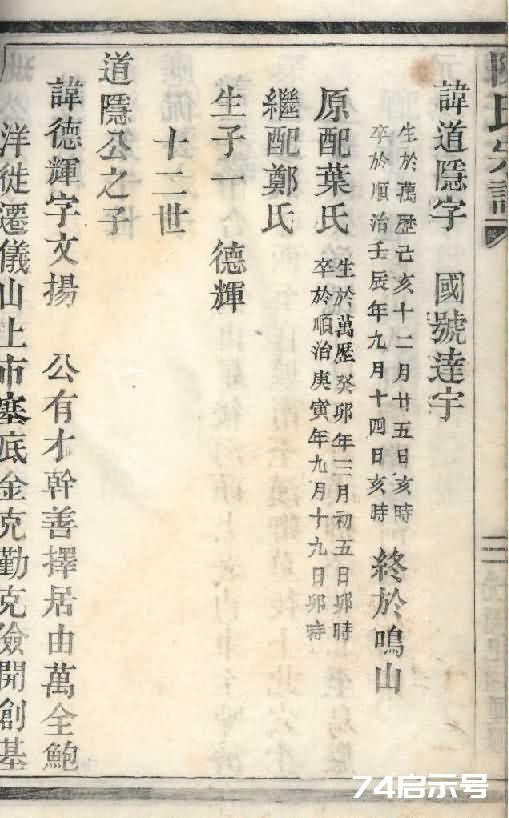 陳氏宗譜
諱道隱字 國號達宇
生於萬歷己亥十二月廿五日亥時
卒於順治壬辰年九月十四日亥時
終於鳴山
原配葉氏
生於萬歷癸卯年三月初五日卯時
卒於順治庚寅年九月十九日卯時
繼配鄭氏
生子一 德輝
十二世
道隱公之子
諱德輝字文揚 公有才幹善擇居由萬全鮑
洋徙遷儀山上市寨底金克勤克險開創基
74启示号